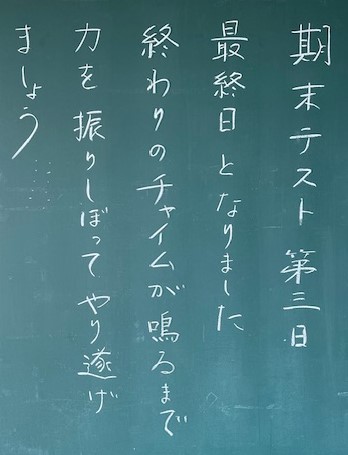 期末テスト 第三日
最終日となりました
終わりのチャイムが鳴るまで
力を振りしぼって やり遂げ
ましょう